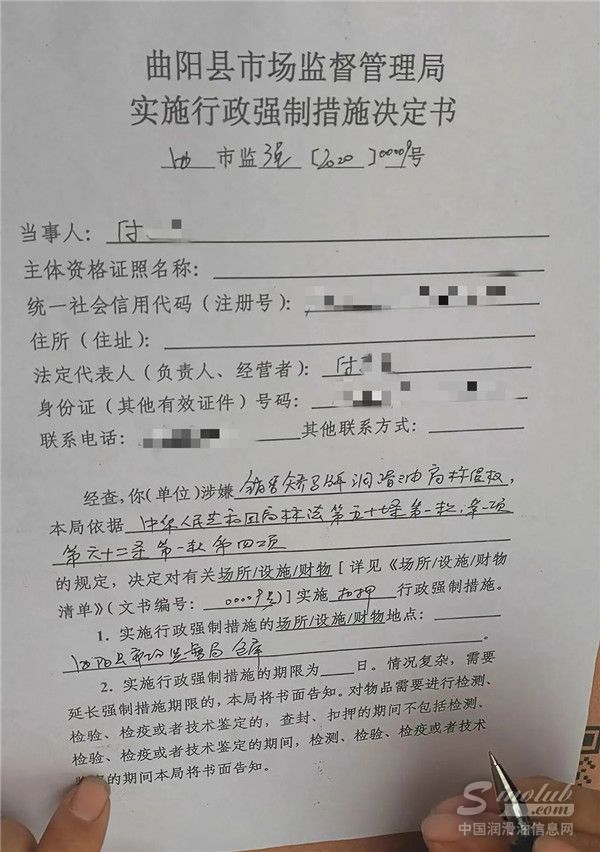 曲阳县市场监督管理局
实施行政强制措施决定书
曲 市监 强 [2020] 00009号
当事人：付
主体资格证照名称：
统一社会信用代码（注册号）：
住所（住址）：
法定代表人（负责人、经营者）：付
身份证（其他有效证件）号码：
联系电话： 其他联系方式：
经查，你(单位)涉嫌 销售 牌润滑油商标侵权，
本局依据 中华人民共和国商标法第五十七条第一款，第一项
第六十二条第一款第四项
的规定，决定对有关场所/设施/财物［详见《场所/设施/财物
清单》（文书编号：00009号）］实施 扣押 行政强制措施。
1. 实施行政强制措施的场所/设施/财物地点：
曲阳县市场监督局仓库 。
2. 实施行政强制措施的期限为 日。情况复杂，需要
延长强制措施期限的，本局将书面告知。对物品需要进行检测、
检验、检疫或者技术鉴定的，查封、扣押的期间不包括检测、
检验、检疫或者技术鉴定的期间，检测、检验、检疫或者技术
的期间本局将书面告知。
Sinolub
.com
中国润滑油信息网